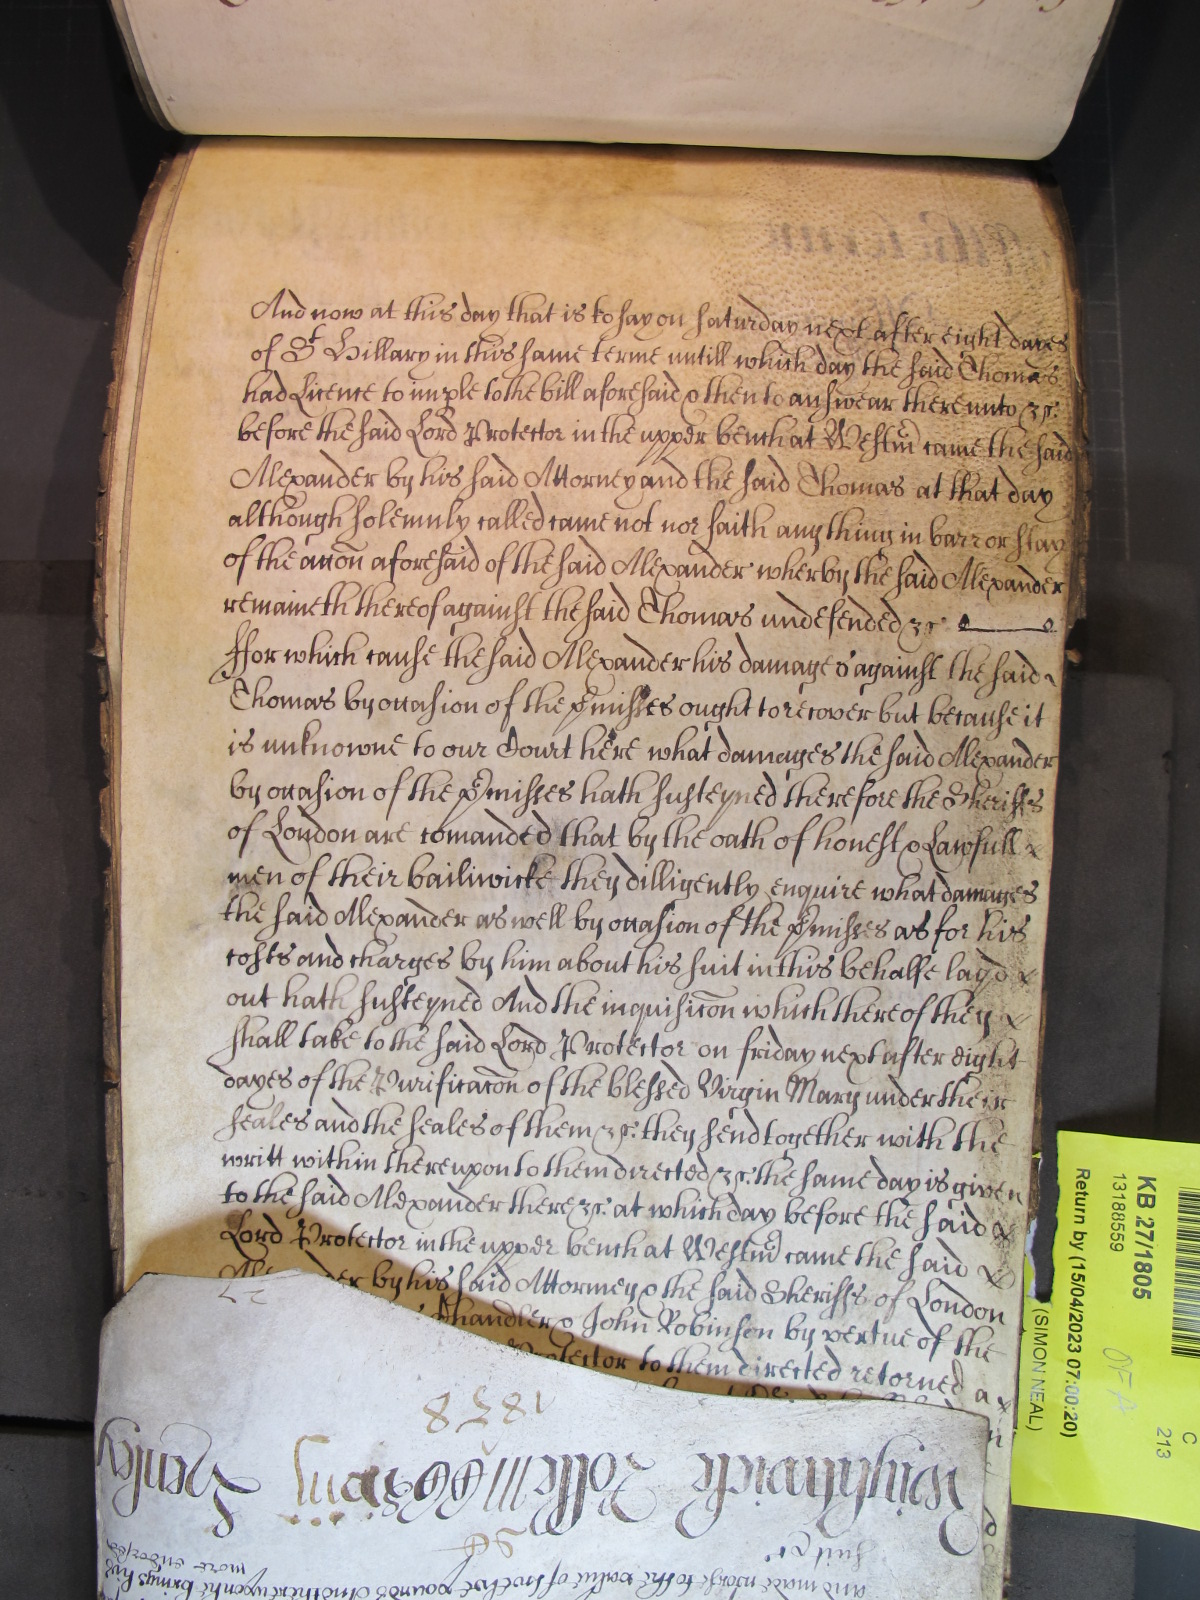 And now at this day that is to say on saturday next after eight daies
of St Hillary in this same terme untill which day the said Thomas
had Licence to imple to the bill aforesaid & then to answear thereunto &c.
before the said Lord Protector in the upper bench at Westm̃ came the said
Alexander by his said Attorney and the said Thomas at that day
although solemnly called came not nor saith any thing in barr or stay
of the accon̄ aforesaid of the said Alexander wherby the said Alexander
remaineth thereof against the said Thomas undefended &c.
ffor which cause the said Alexander his damages against the said
Thomas by occasion of the p̃misses ought to recover but because it
is unknowne to our Court here what damages the said Alexander
by occasion of the p̃misses hath susteyned therefore the Sheriffs
of London are comanded that by the oath of honest & Lawfull
men of their bailiwicke they dilligently enquire what damages
the said Alexander as well by occasion of the p̃misses as for his
costs and charges by him about his suit in this behalfe layd
out hath susteyned And the inquisicōn which thereof they
shall take to the said Lord Protector on friday next after eight
dayes of the Purificacōn of the blessed Virgin Mary under their
seales and the seales of them &c. they send together with the
writt within thereupon to them directed &c. the same day is given
to the said Alexander there &c. at which day before the said
Lord Protector in the upper bench at Westm̃ came the said
by his said Attorney & the said Sheriffs of London
Chandler & John Robinson by vertue of the
Protector to them directed retorned a
27
1858
Wightwicke Rolle Henley
Suit &c
and made worse to the value of twelve pounds And thereupon he brings his
more endorsed
KB 27/1805
13188559
Return by (15/04/2023 07:00:20)
(SIMON NEAL)
C
213